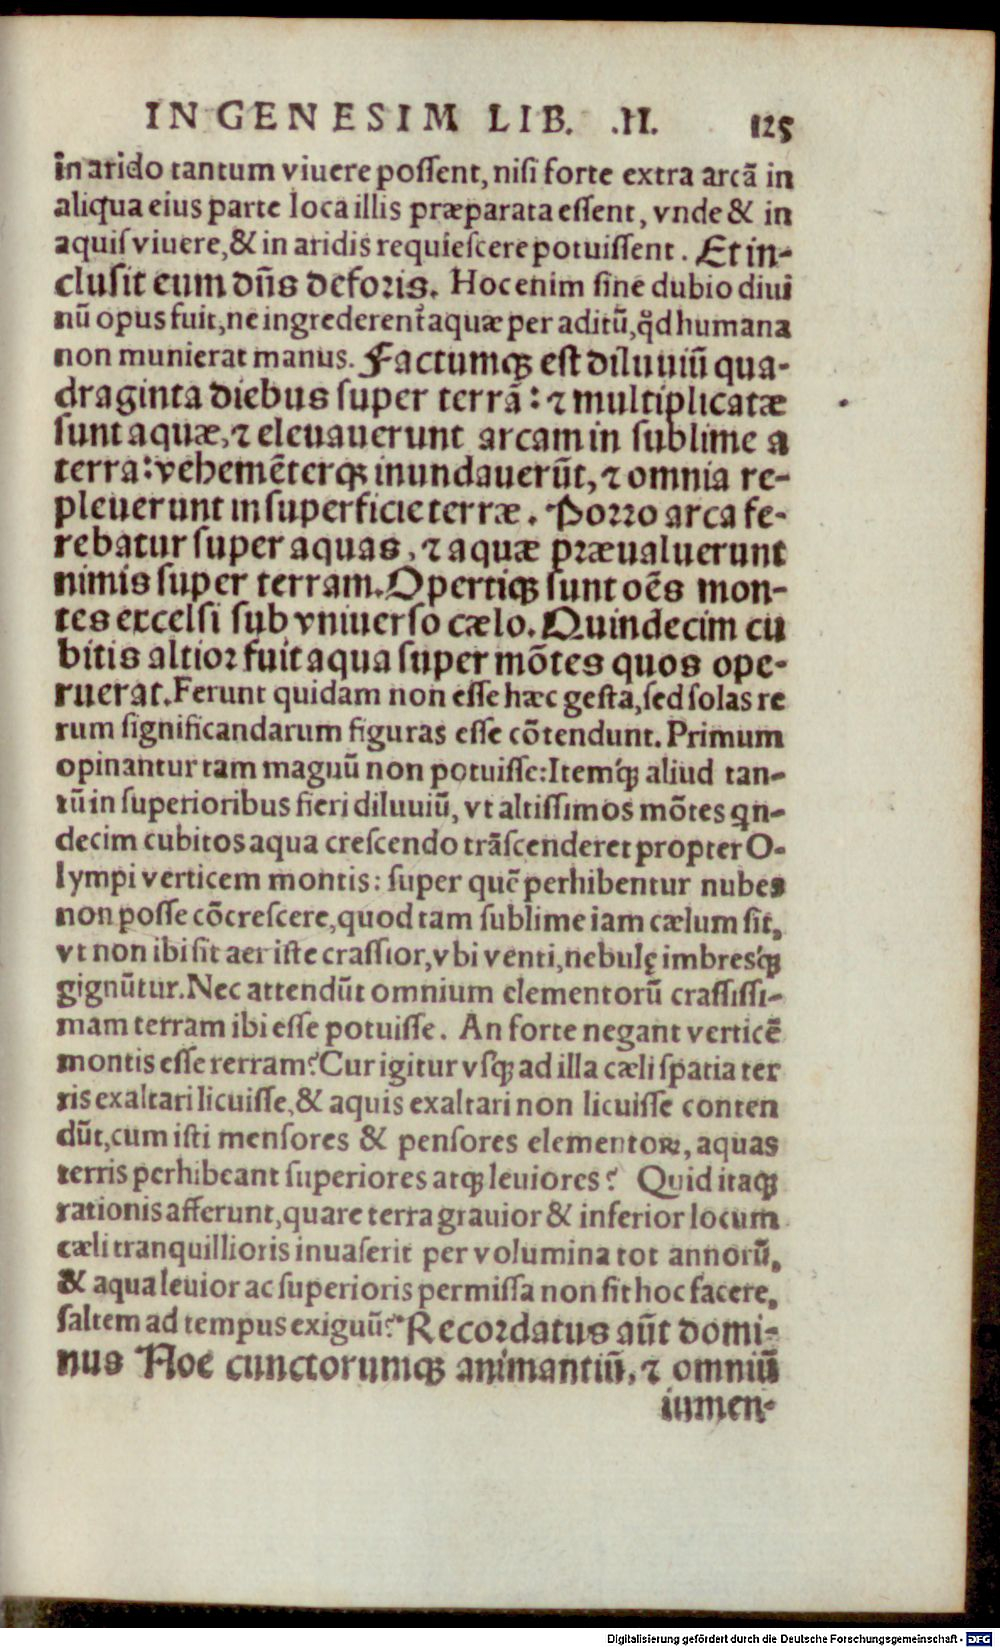 IN GENESIM LIB. .II. 125
in arido tantum viuere possent, nisi forte extra arcā in
aliqua eius parte loca illis præparata essent, vnde & in
aquis viuere, & in aridis requiescere potuissent. Et in-
clusit eum dn̄s deforis. Hoc enim sine dubio diui
nū opus fuit, ne ingrederent᷑ aquæ per aditū, qđ humana
non munierat manus. Factumqꝫ est diluuiū qua-
draginta diebus super terrā: ⁊ multiplicatæ
sunt aquæ, ⁊ eleuauerunt arcam in sublime a
terra: vehemēterqꝫ inundauerūt, ⁊ omnia re-
pleuerunt in superficie terræ. Porro arca fe-
rebatur super aquas, ⁊ aquæ præualuerunt
nimis super terram. Opertiqꝫ sunt oēs mon-
tes excelsi sub vniuerso cælo. Quindecim cu
bitis altior fuit aqua super mōtes quos ope-
ruerat. Ferunt quidam non esse hæc gesta, sed solas re
rum significandarum figuras esse cōtendunt. Primum
opinantur tam magnū non potuisse: Itemqꝫ aliud tan-
tū in superioribus fieri diluuiū, vt altissimos mōtes qn-
decim cubitos aqua crescendo trāscenderet propter O-
lympi verticem montis: super quē perhibentur nubes
non posse cōcrescere, quod tam sublime iam cælum sit,
vt non ibi sit aer iste crassior, vbi venti, nebulę imbresqꝫ
gignūtur. Nec attendūt omnium elementorū crassissi-
mam terram ibi esse potuisse. An forte negant verticē
montis esse rerram? Cur igitur vsqꝫ ad illa cæli spatia ter
ris exaltari licuisse, & aquis exaltari non licuisse conten
dūt, cum isti mensores & pensores elementoꝝ, aquas
terris perhibeant superiores atqꝫ leuiores? Quid itaqꝫ
rationis afferunt, quare terra grauior & inferior locum
cæli tranquillioris inuaserit per volumina tot annorū,
& aqua leuior ac superioris permissa non sit hoc facere,
saltem ad tempus exiguū? Recordatus aūt domi-
nus Noe cunctorumqꝫ animantiū, ⁊ omniū
iumen-
Digitalisierung gefördert durch die Deutsche Forschungsgemeinschaft - DFG